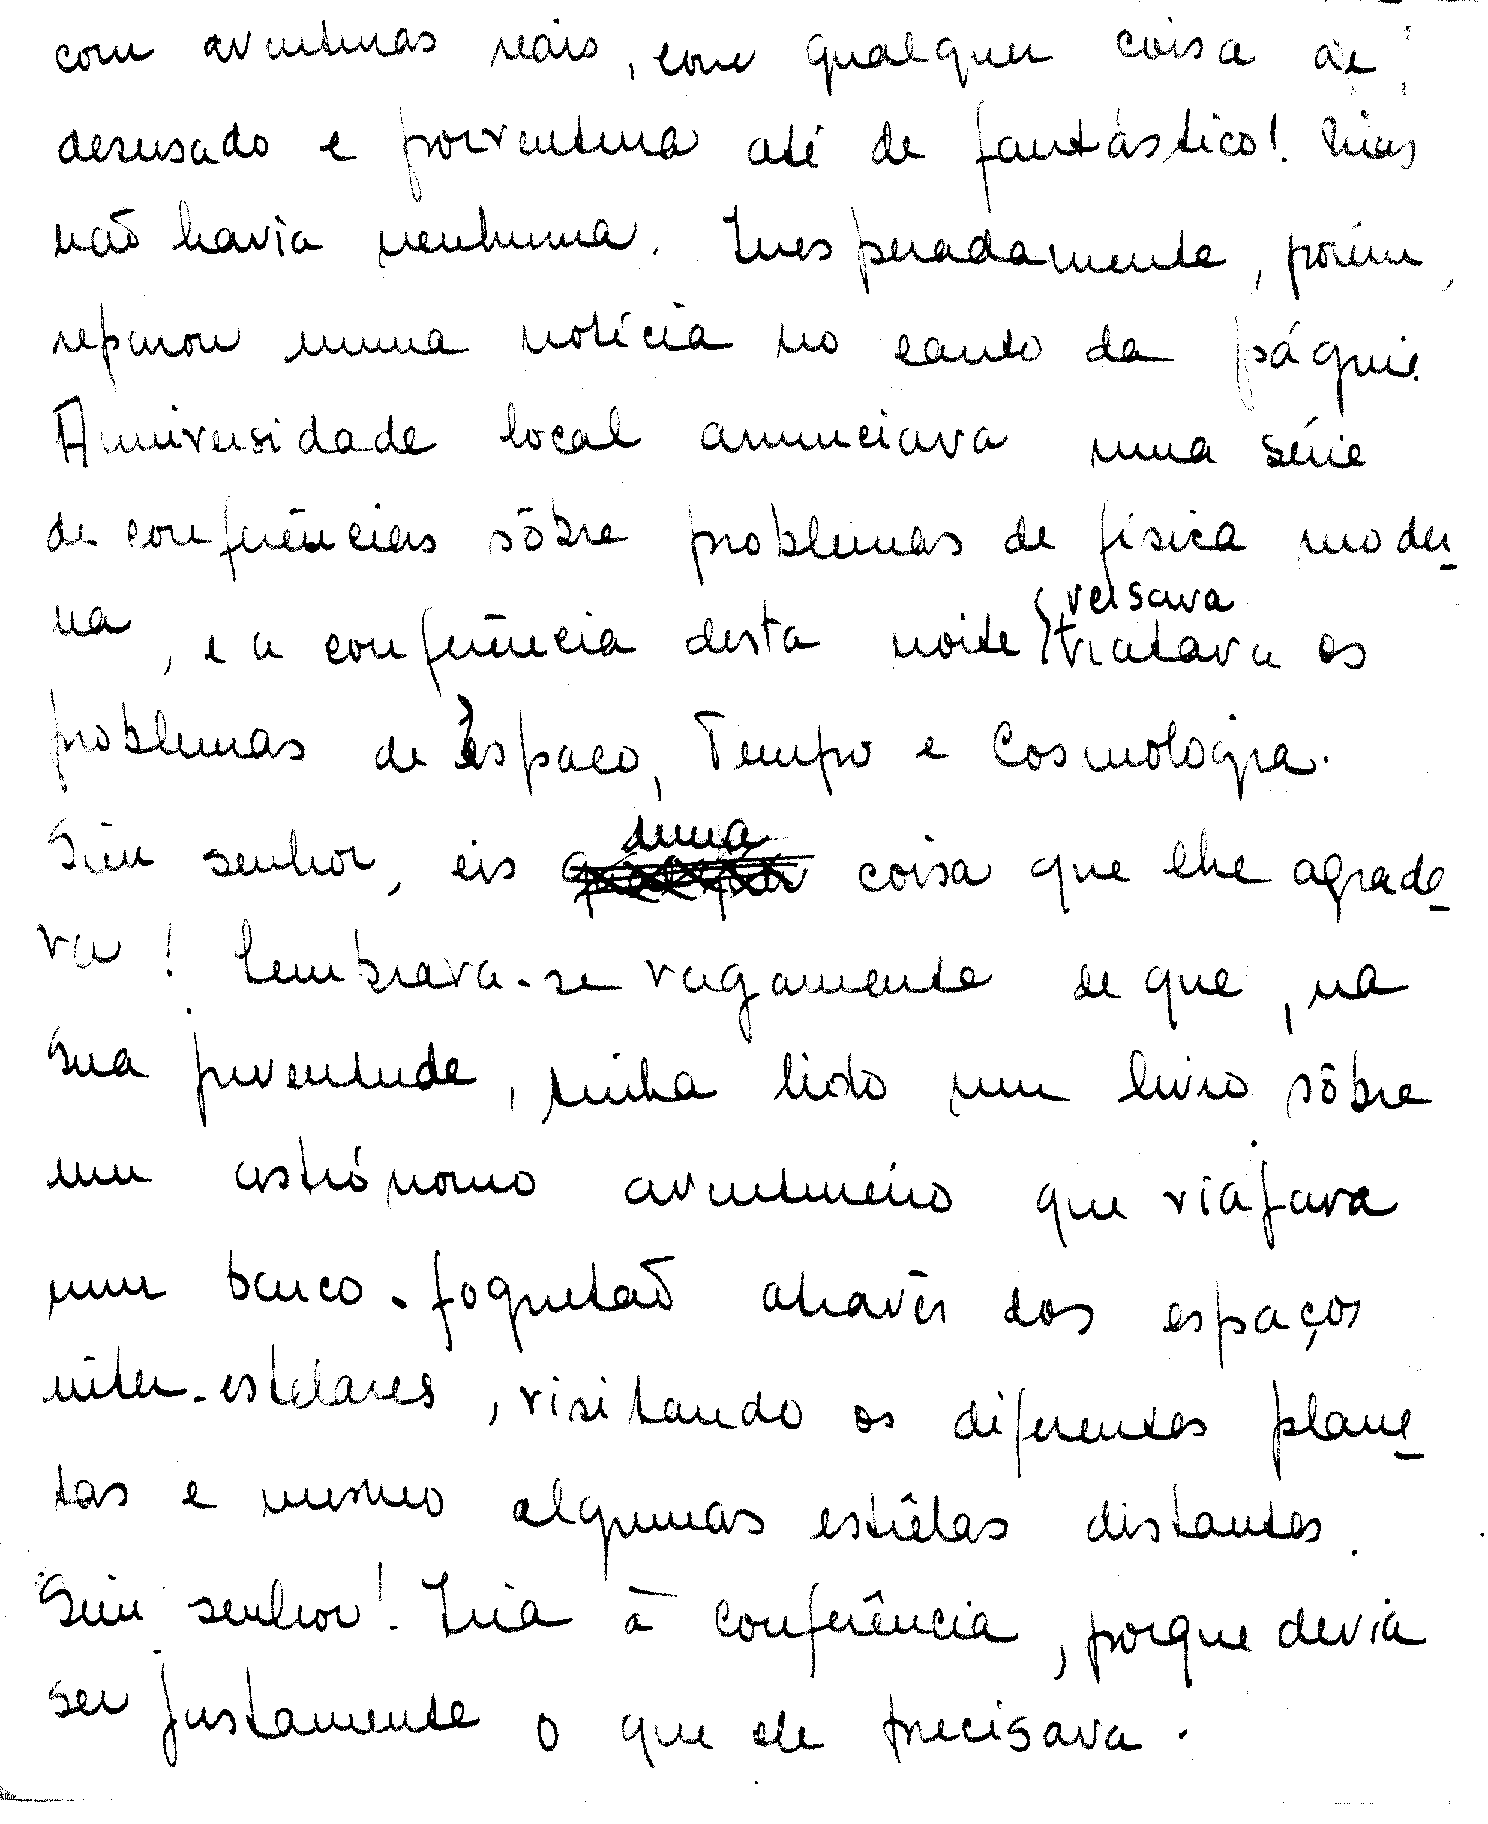 com aventuras reais, com qualquer coisa de
desusado e porventura até de fantástico! Mas
não havia nenhuma. Inesperadamente, porém,
reparou numa notícia no canto da página.
A universidade local anunciava uma série
de conferências sôbre problemas de física moder-
na, e a conferência desta noite versava
tratava os
problemas de Espaço, Tempo e Cosmologia.
Sim senhor, eis duma coisa que lhe agrada-
va! Lembrava-se vagamente de que, na
sua juventude, tinha lido um livro sôbre
um astrónomo aventureiro que viajava
num barco-foguetão através dos espaços
inter-estelares, visitando os diferentes plane-
tas e mesmo algumas estrêlas distantes.
Sim senhor! Iria à conferência, porque devia
ser justamente o que ele precisava.